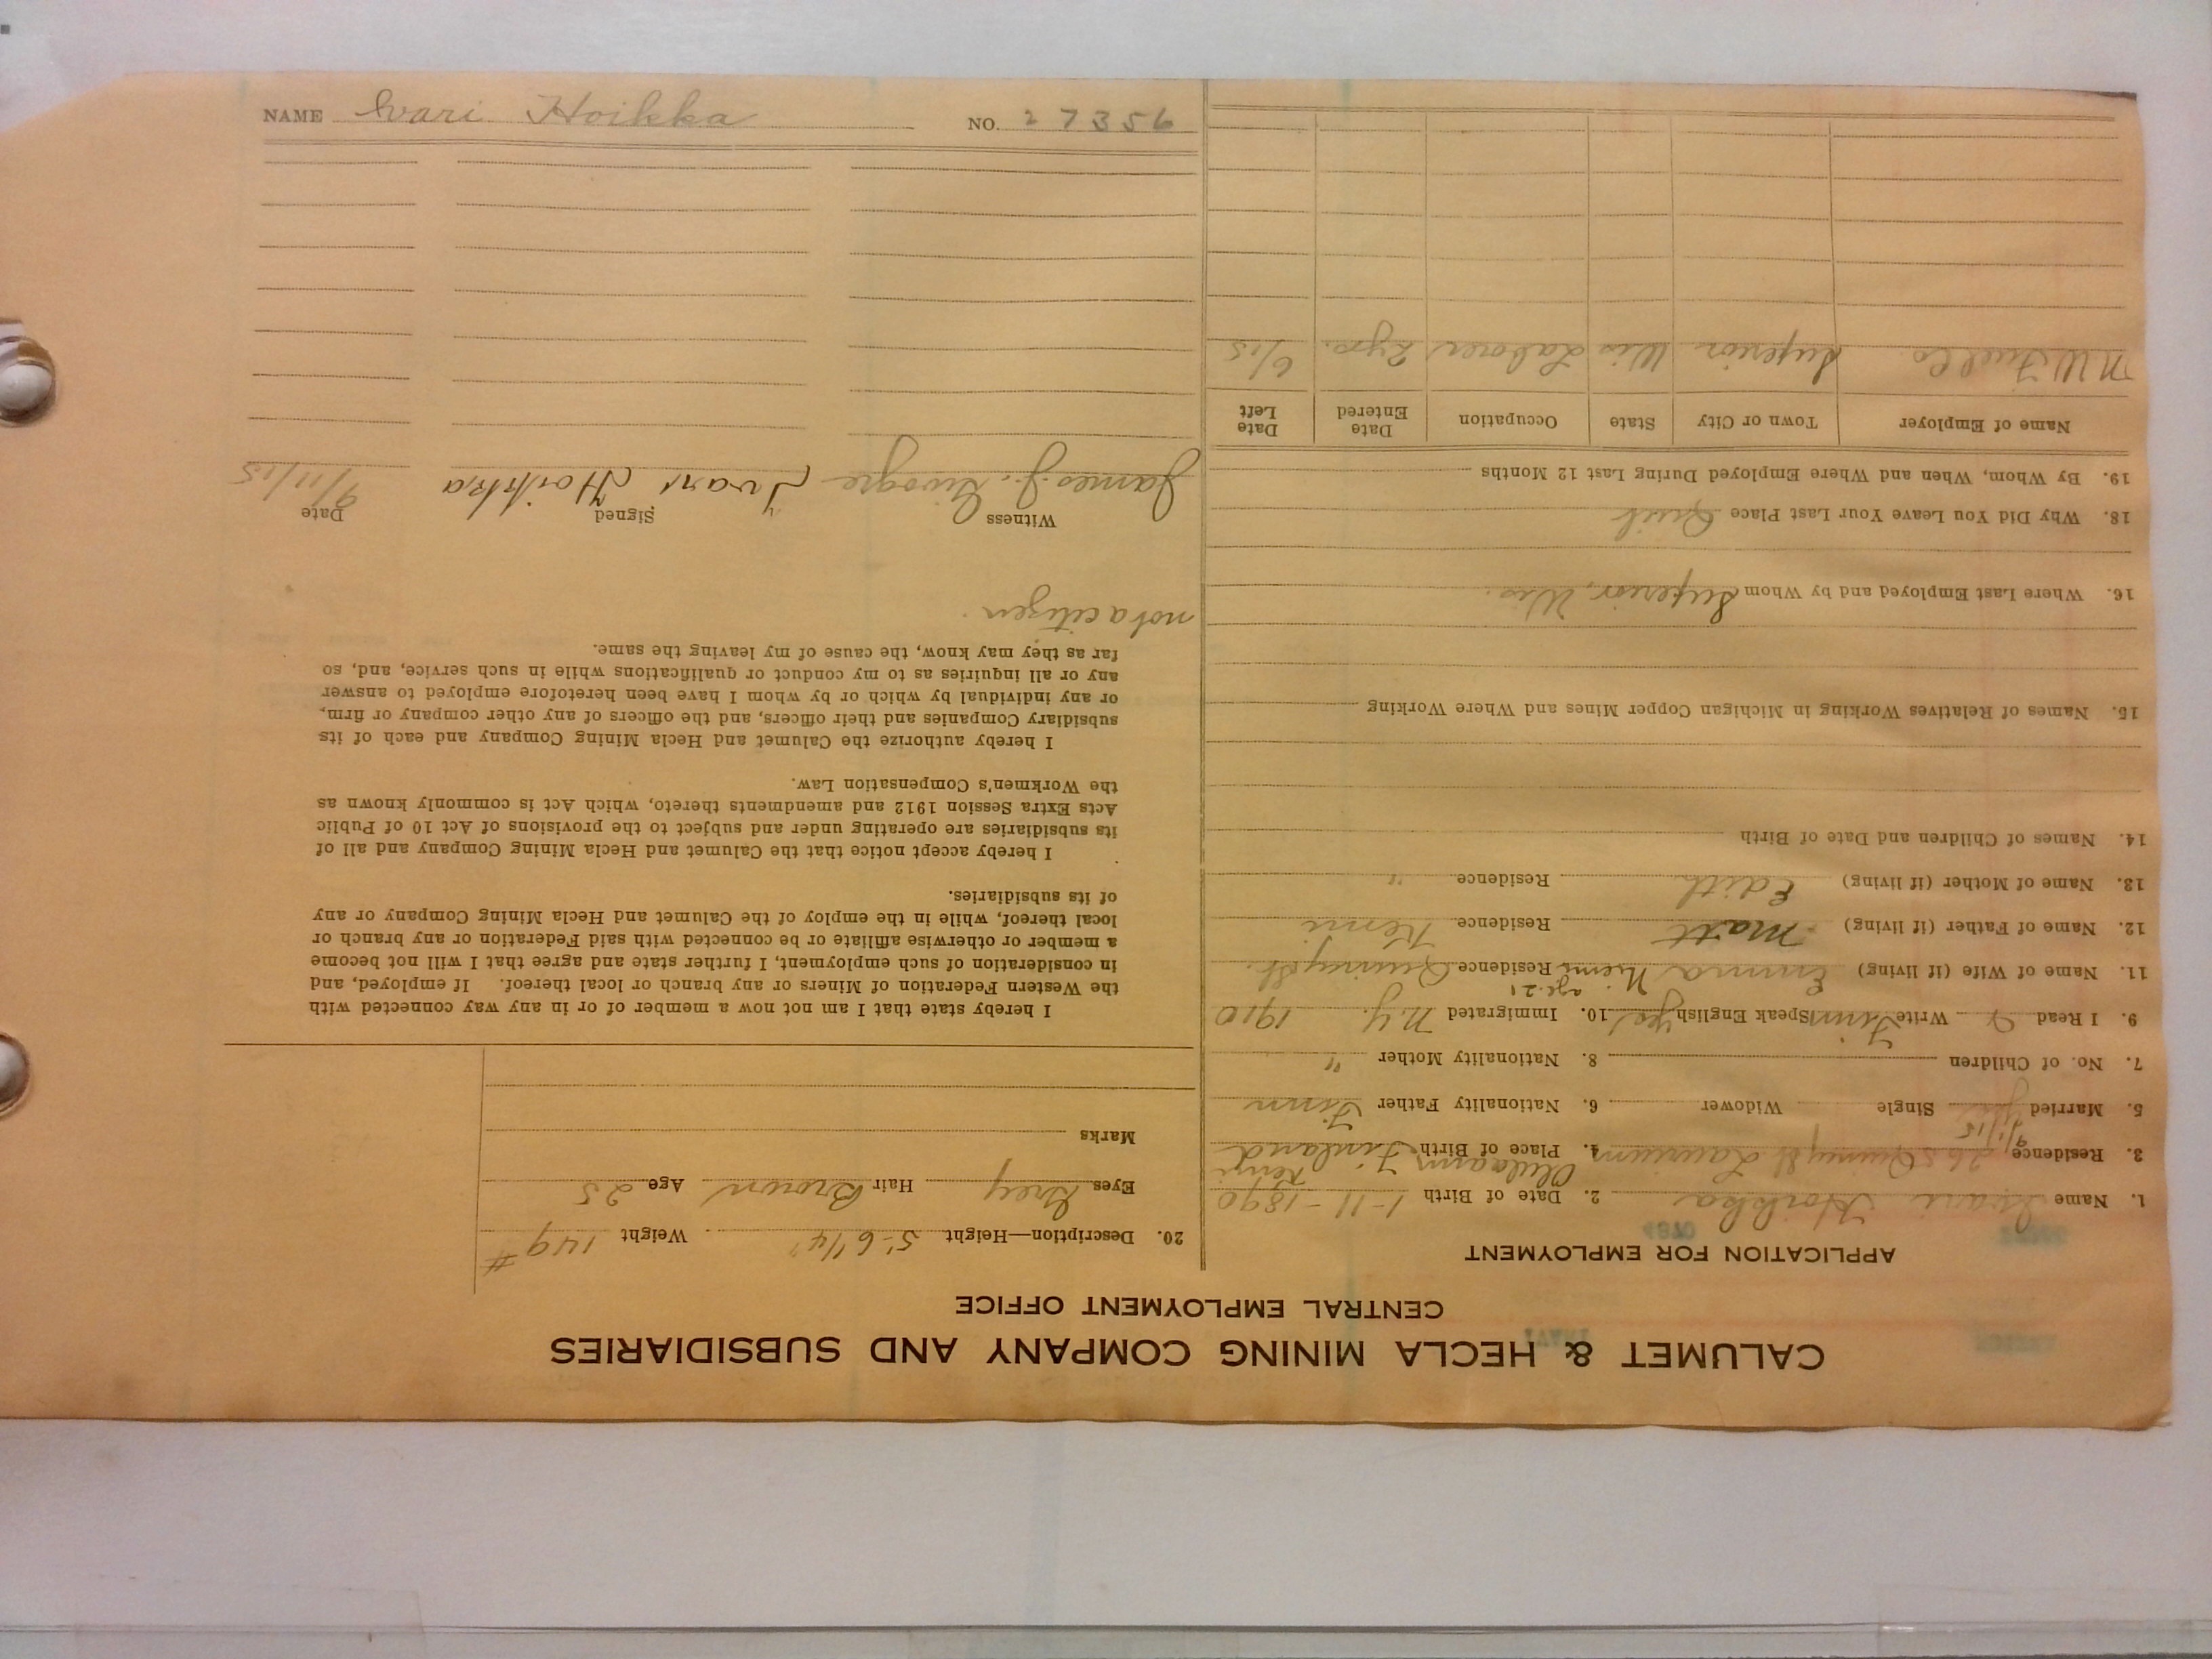 CALUMET & HECLA MINING COMPANY AND SUBSIDIARIES
CENTRAL EMPLOYMENT OFFICE
APPLICATION FOR EMPLOYMENT
1. Name Ivari Hoikka 2. Date of Birth 1-11-1890
Kemi
3. Residence 265 Quincy St Laurium 4. Place of Birth Finland
9/1/15
5. Married Yes Single Widower 6. Nationality Father Finn
7. No. of Children 8. Nationality Mother "
9. I Read Write Finn Speak English yes 10. Immigrated N.Y. 1910
age-21
11. Name of Wife (if living) Emma Niemi Residence Quincy St.
12. Name of Father (if living) Matt Residence Kemi
13. Name of Mother (if living) Edith Residence "
14. Names of Children and Date of Birth
15. Names of Relatives Working in Michigan Copper Mines and Where Working
16. Where Last Employed and by Whom Superior, Wis.
18. Why Did You Leave Your Last Place Quit
19. By Whom, When and Where Employed During Last 12 Months
Name of Employer Town or City State Occupation Date Entered Date Left
N W Fuel Co Superior Wis Laborer 2 yrs. 6/15
20. Description—Height 5'-6 1/4" Weight 149 #
Eyes Grey Hair Brown Age 25
Marks
I hereby state that I am not now a member of or in any way connected with
the Western Federation of Miners or any branch or local thereof. If employed, and
in consideration of such employment, I further state and agree that I will not become
a member or otherwise affiliate or be connected with said Federation or any branch or
local thereof, while in the employ of the Calumet and Hecla Mining Company or any
of its subsidiaries.
I hereby accept notice that the Calumet and Hecla Mining Company and all of
its subsidiaries are operating under and subject to the provisions of Act 10 of Public
Acts Extra Session 1912 and amendments thereto, which Act is commonly known as
the Workmen's Compensation Law.
I hereby authorize the Calumet and Hecla Mining Company and each of its
subsidiary Companies and their officers, and the officers of any other company or firm,
or any individual by which or by whom I have been heretofore employed to answer
any or all inquiries as to my conduct or qualifications while in such service, and, so
far as they may know, the cause of my leaving the same.
not a citizen.
Witness Signed Date
James J. Ivari Hoikka 9/11/15
NAME Ivari Hoikka NO. 27356